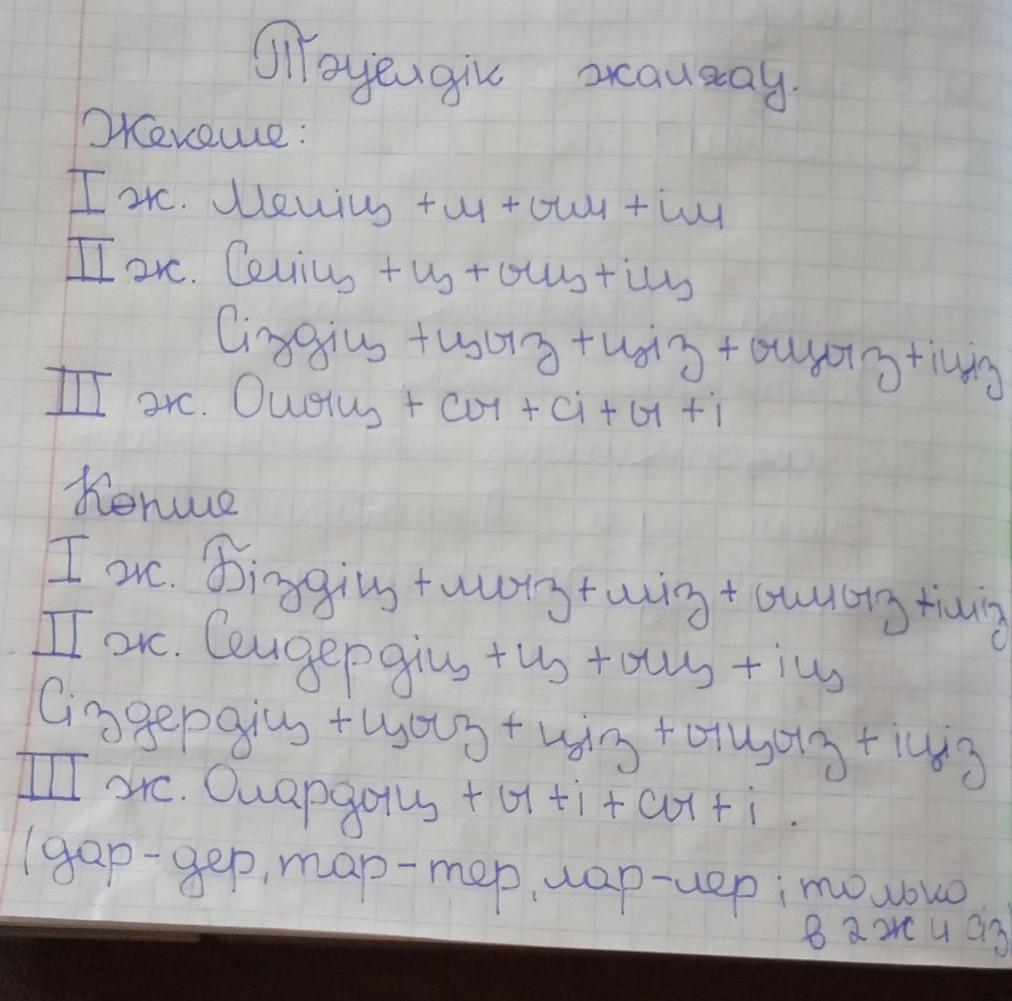 Тәуелдік жалғау.
Жекеше:
I ж. Менің +м+ым+ім
II ж. Сенің +ң+ың+ің
Сіздің +ңыз+ңіз+ыңыз+іңіз
III ж. Оның +сы+сі+ы+і
Көпше
I ж. Біздің +мыз+міз+ымыз+іміз
II ж. Сендердің +ң+ың+ің
Сіздердің +ңыз+ңіз+ыңыз+іңіз
III ж. Олардың +ы+і+сы+і.
(дар-дер, тар-тер, лар-лер; только
в 2ж и сіз